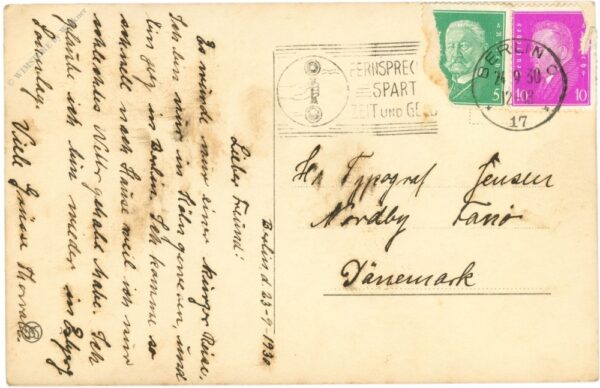 Berlin d. 23-9 1930
Lieber Freund!
Es wurde nur eine kurze Reise,
Ich bin nur in Köln gewesen, und
bin jetzt in Berlin. Ich komme so
schnell nach Hause weil ich nur
schlechtes Wetter gehabt habe. Ich
glaube ich bin wieder in Esbjerg
Sonntag. Viele Grüsse Thorvald
FERNSPRECH
SPART
ZEIT UND GELD
BERLIN C
24.9.30
17
5
10
10
Hr Typograf Jensen
Nordby Fanø
Dänemark